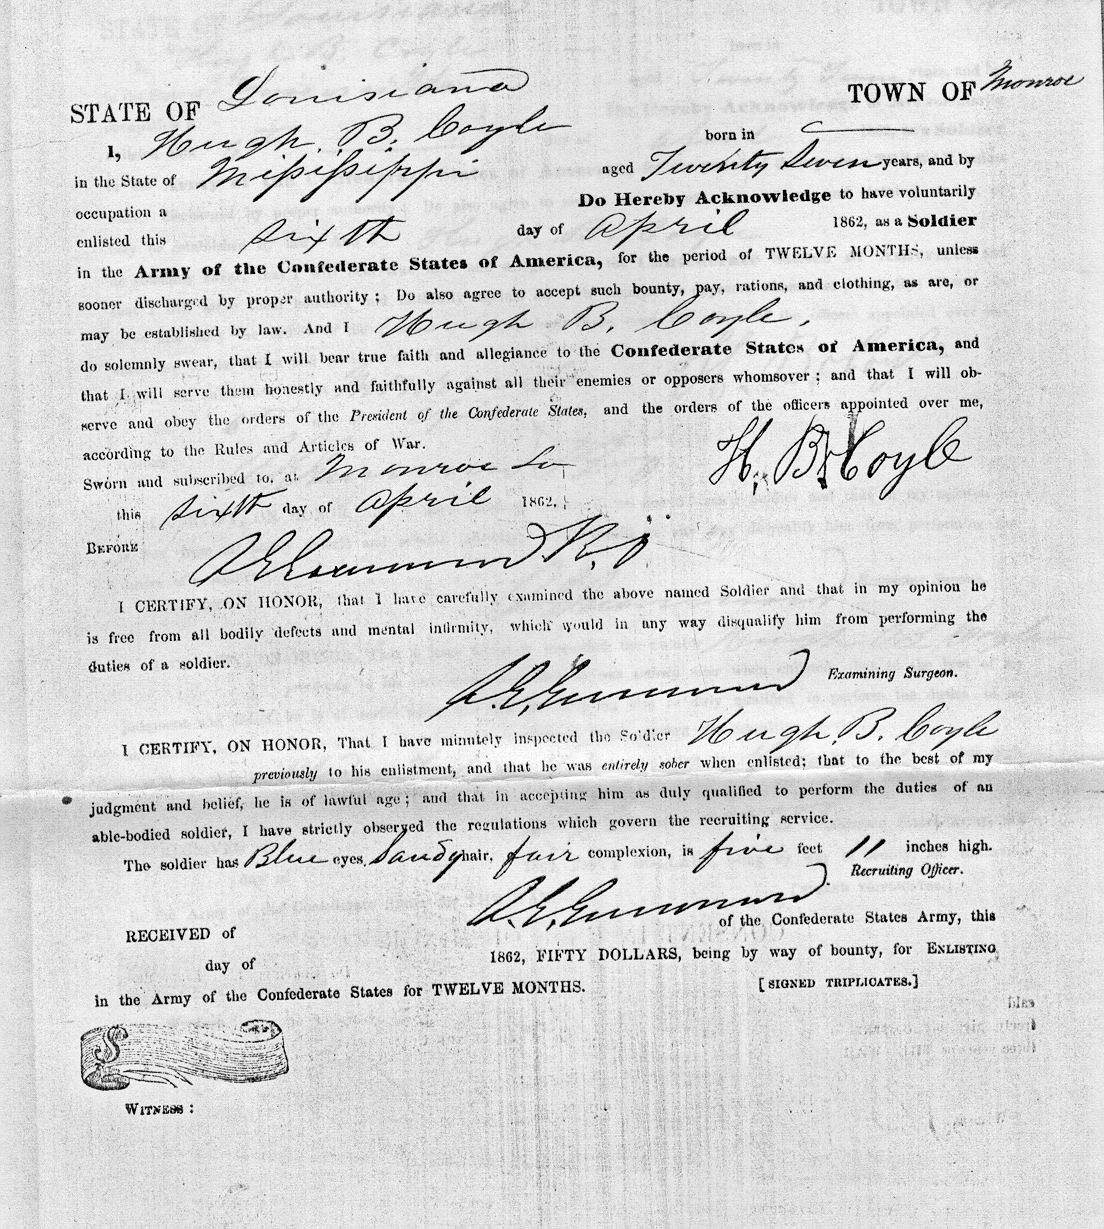 STATE OF Louisiana TOWN OF Monroe
I, Hugh. B. Coyle born in
in the State of Missississippi aged Twenty Seven years, and by
occupation a Do Hereby Acknowledge to have voluntarily
enlisted this sixth day of April 1862, as a Soldier
in the Army of the Confederate States of America, for the period of TWELVE MONTHS, unless
sooner discharged by proper authority; Do also agree to accept such bounty, pay, rations, and clothing, as are, or
may be established by law. And I Hugh B. Coyle,
do solemnly swear, that I will bear true faith and allegiance to the Confederate States of America, and
that I will serve them honestly and faithfully against all their enemies or opposers whomsover; and that I will ob-
serve and obey the orders of the President of the Confederate States, and the orders of the officers appointed over me,
according to the Rules and Articles of War.
H. B. Coyle
Sworn and subscribed to, at Monroe La
this sixth day of April 1862,
BEFORE
I CERTIFY, ON HONOR, that I have carefully examined the above named Soldier and that in my opinion he
is free from all bodily defects and mental infirmity, which would in any way disqualify him from performing the
duties of a soldier.
Examining Surgeon.
I CERTIFY, ON HONOR, That I have minutely inspected the Soldier Hugh. B. Coyle
previously to his enlistment, and that he was entirely sober when enlisted; that to the best of my
judgment and belief, he is of lawful age; and that in accepting him as duly qualified to perform the duties of an
able-bodied soldier, I have strictly observed the regulations which govern the recruiting service.
The soldier has Blue eyes, Sandy hair, fair complexion, is five feet 11 inches high.
Recruiting Officer.
RECEIVED of of the Confederate States Army, this
day of 1862, FIFTY DOLLARS, being by way of bounty, for ENLISTING
in the Army of the Confederate States for TWELVE MONTHS. [SIGNED TRIPLICATES.]
WITNESS: